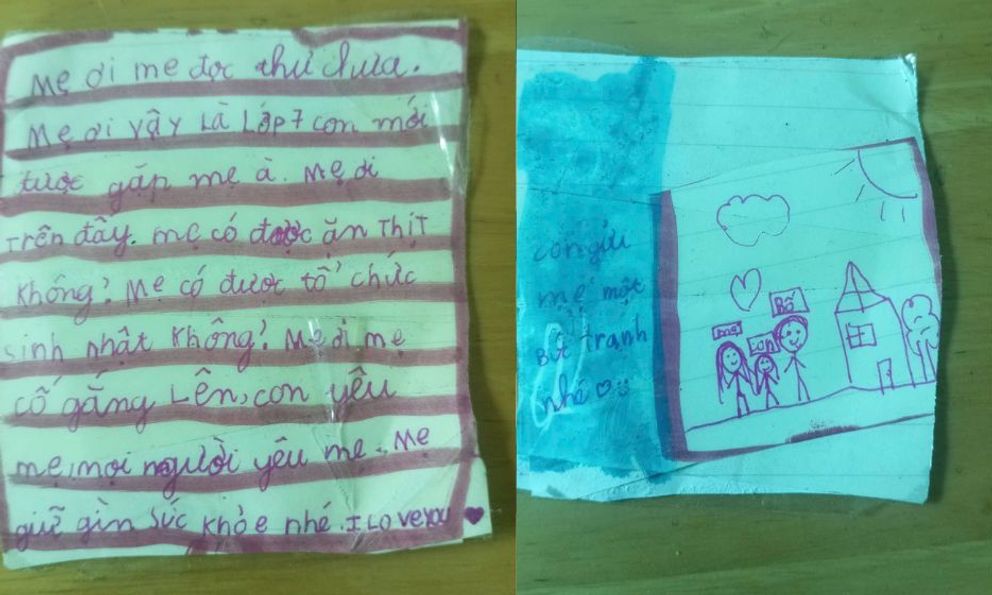 Mẹ ơi mẹ đọc thư chưa.
Mẹ ơi vậy là lớp 7 con mới
được gặp mẹ à. Mẹ ơi
trên đấy. mẹ có được ăn thịt
không? Mẹ có được tổ chức
sinh nhật không? Mẹ ơi mẹ
cố gắng lên, con yêu
mẹ, mọi người yêu mẹ. Mẹ
giữ gìn sức khỏe nhé. I Love you
con gửi
mẹ một
bức tranh
nhé
mẹ
con
Bố